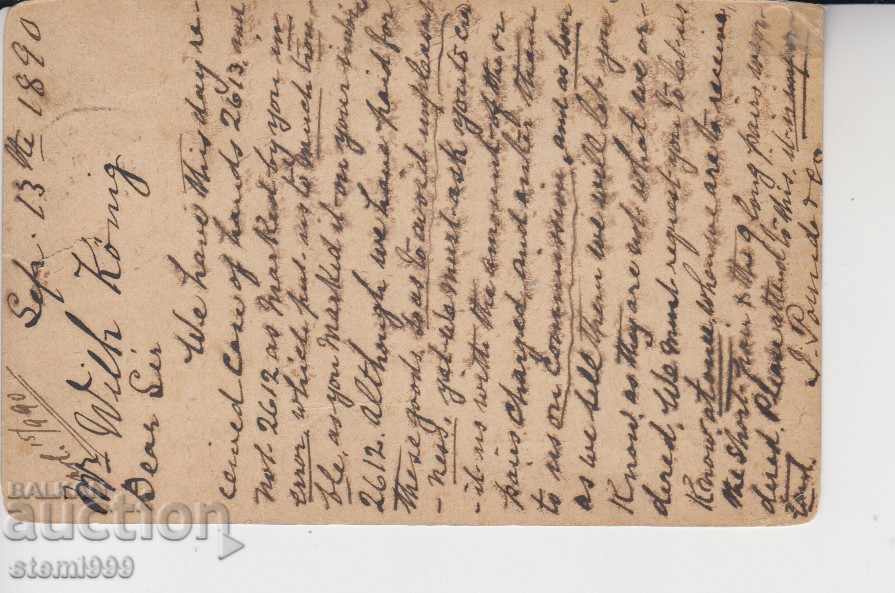 Sep. 13th 1890
15/9 90
Mr Wilh König
Dear Sir
We have this day re-
ceived case of hands 2613 and
not 2612 as marked by you in
error which put us to much trou-
ble, as you marked it on your
2612. Although we have paid for
these goods so as to avoid unpleasant
-ness, yet we must ask you to cre
-it us with the amount of the
pairs charged and enter them
to us on Commission, and as soon
as we sell them we will let you
Know, as they are not what we or-
dered. We must request you to let us
Know at once when we are to receive
the short pair & the 9 long pairs
dered. Please attend to this
BALKAN
auction
stemi999